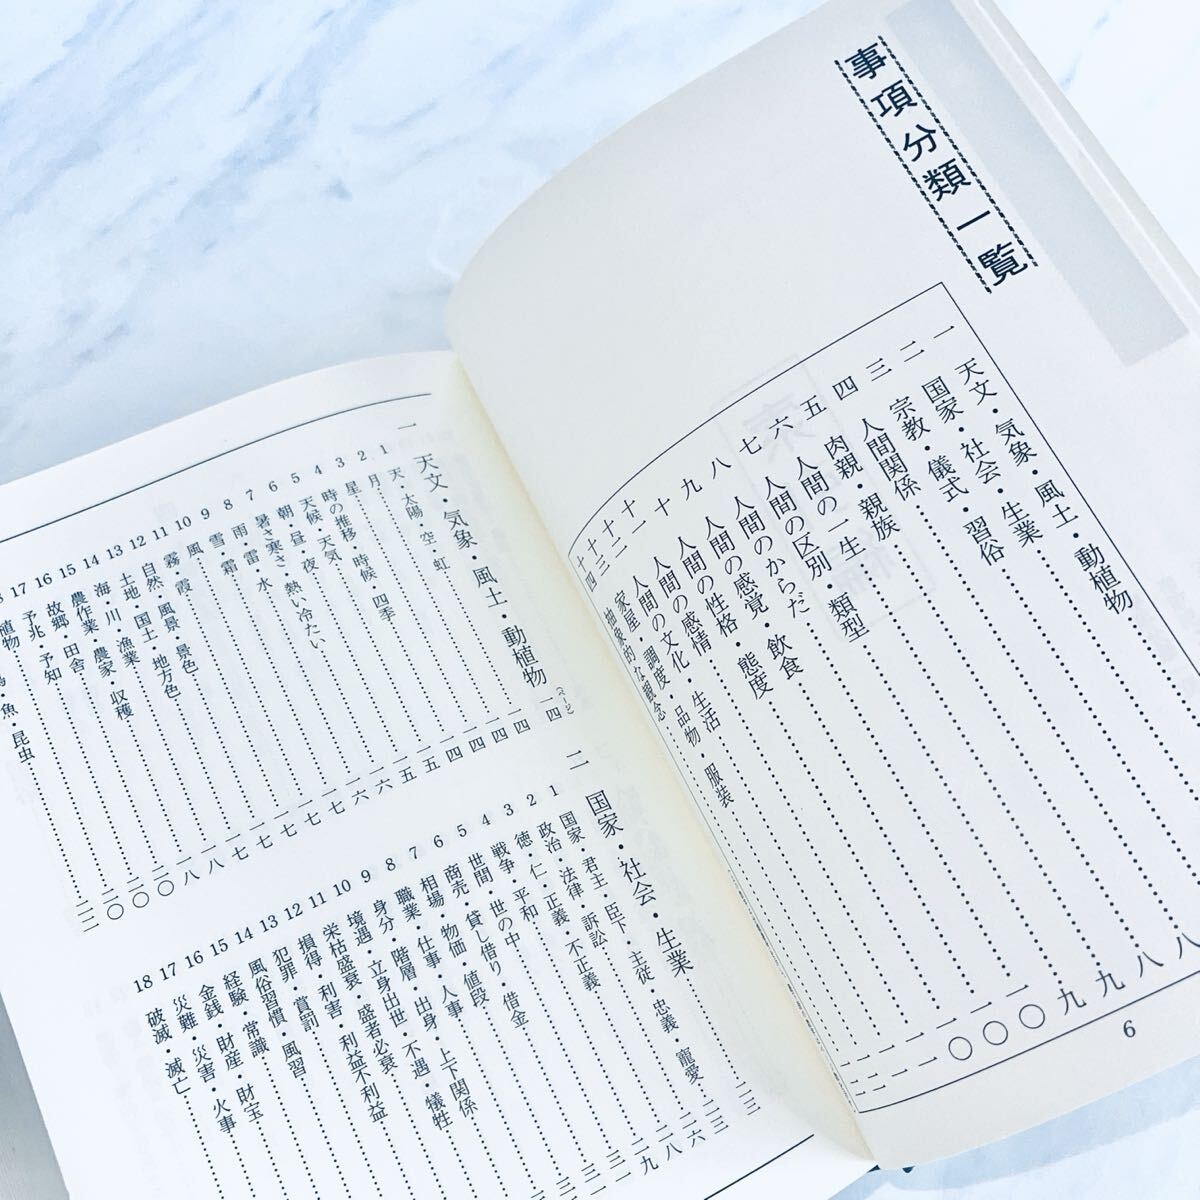 事項分類一覧
一 天文・気象・風土・動植物 八
二 国家・社会・生業 八
三 宗教・儀式・習俗 九
四 人間関係 九
五 肉親・親族 一〇
六 人間の一生・類型 一〇
七 人間の区別
八 人間のからだ・飲食
九 人間の感覚・態度
十 人間の性格
十一 人間の感情・生活
十二 人間の文化・品物・服装
十三 家屋・調度
十四 抽象的な観念
6
一 天文・気象・風土・動植物
(ページ)
1 天・太陽・空・虹 一四
2 月 一四
3 星 一四
4 時の推移・時候・四季 一四
5 天候・天気 一四
6 朝・昼・夜 一五
7 暑さ寒さ・熱い冷たい 一五
8 雨・雷・水 一六
9 雪・霜 一六
10 風 一七
11 霧・霞 一七
12 自然・風景・景色 一七
13 土地・国土・地方色 一七
14 海・川・漁業
15 農作業・農家・収穫
16 故郷・田舎
17 予兆・予知
植物
・魚・昆虫
二 国家・社会・生業
1 国家・君主・臣下・主従・忠義・寵愛
2 政治・法律・訴訟
3 徳・仁・正義・不正義
4 戦争・平和
5 世間・世の中
6 商売・貸し借り・借金
7 相場・物価・値段
8 職業・仕事・人事
9 身分・階層・出身・上下関係
10 境遇・立身出世・不遇・犠牲
11 栄枯盛衰・盛者必衰
12 損得・利害・利益不利益
13 犯罪・賞罰
14 風俗習慣・風習
15 経験・常識
16 金銭・財産・財宝
17 災難・災害・火事
18 破滅・滅亡